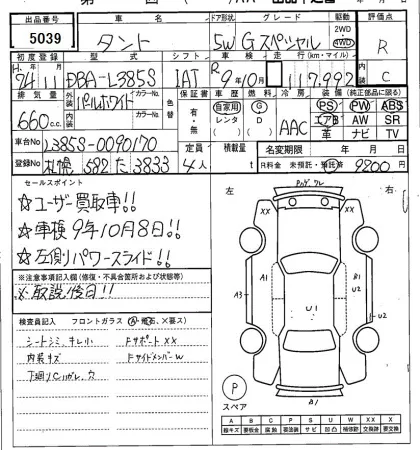 出品番号 車名 ドア形状 グレード 駆動 評価点
5039 タント 5W Gスペシャル 2WD 4WD R
初度登録 型式 シフト 車検 走行(km・マイル)
24年11月 DBA-L385S IAT R9年10月 117,992 C
排気量 外装 カラーNo. 色替 保証書 車歴 燃料 冷房 装備(純正部品に限る)
660c.c. パールホワイト 有・無 自家用 レンタ G D AAC PS PW ABS
内装 カラーNo. エアB AW SR
革 ナビ TV
車台No L385S-0090170 定員 積載量 名変期限 年 月 日
登録No 札幌 582 た 3833 4人 t R料金 未預託・預託済 9200
セールスポイント
☆ユーザー買取車!!
☆車検9年10月8日!!
☆左側パワースライド!!
※注意事項記入欄(修復・不具合箇所および状態等)
※取説後日!!
検査員記入 フロントガラス
シートシミ、キレ小 Fサポート XX
内装キズ FサイドメンバーW
下廻りCハガレ、穴
左 右
XX XX
A1 B1
U2
A3 U1 U2
P スペア
B1
A B C P S U W X XX
線キズ 要板金 腐蝕 要塗装 サビ 凹凸 補修跡 交換跡 要交換